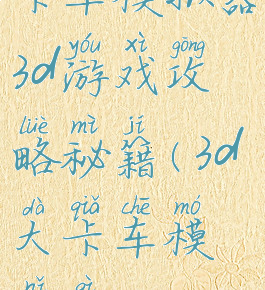 卡车模拟器
yóu xì gōng
3d游戏攻
lüè mì jí
略秘籍(3d
dà qiǎ chē mó
大卡车模
nǐ qì